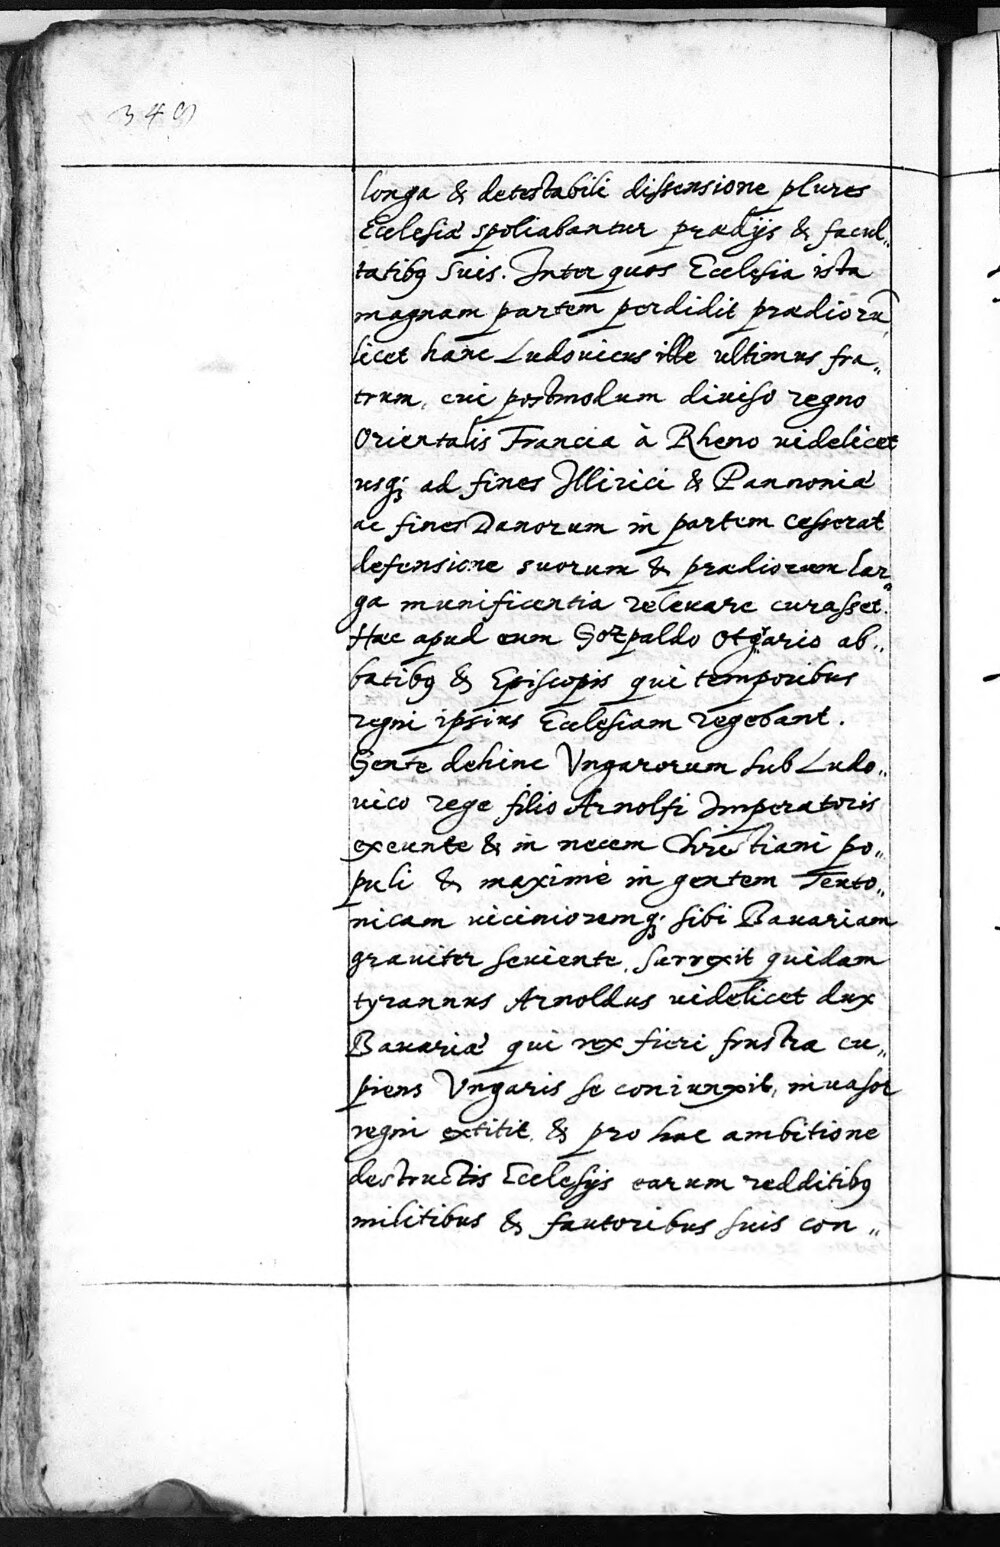 349
longa & detestabili dissensione plures
Ecclesiæ spoliabantur prædijs & facul„
tatibꝫ suis. Inter quos Ecclesia ista
magnam partem perdidit prædiorū
licet hanc Ludouicus ille ultimus fra„
trum, cui postmodum diuiso regno
Orientalis Francia à Rheno uidelicet
usqꝫ ad fines Illirici & Pannoniæ
ac fines Danorum in partem cesserat
defensione suorum & prædiorum lar„
ga munificentia releuare curasset.
Hæc apud eum Gozpaldo Otgario ab„
batibꝫ & Episcopis qui temporibus
regni ipsius Ecclesiam regebant.
Gente dehinc Vngarorum sub Ludo„
uico rege filio Arnolfi Imperatoris
exeunte & in necem Christiani po„
puli & maximè in gentem Teuto„
nicam uicinioremqꝫ sibi Bauariam
grauiter seuiente, surrexit quidam
tyrannus Arnoldus uidelicet dux
Bauariæ qui rex fieri frustra cu„
piens Vngaris se coniunxit, inuasor
regni extitit, & pro hac ambitione
destructis Ecclesijs earum redditibꝫ
militibus & fautoribus suis con„